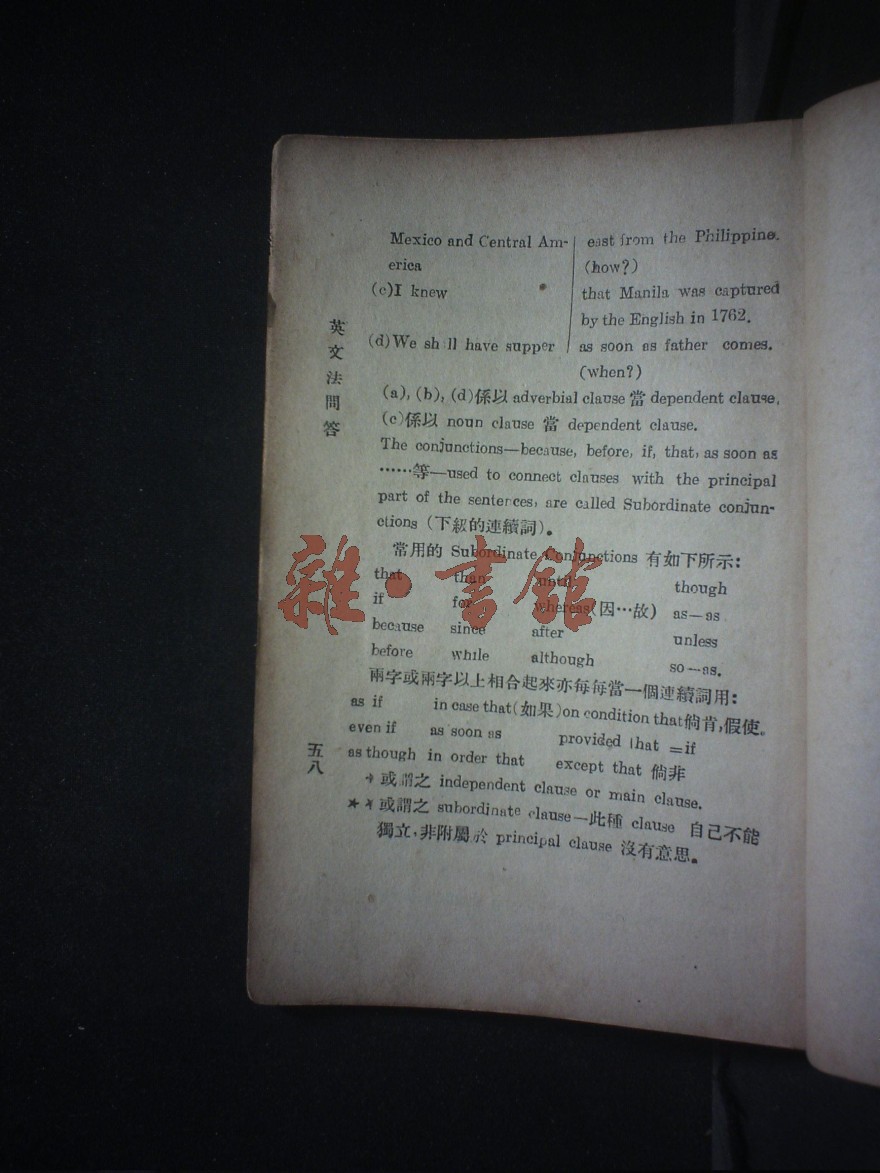 Mexico and Central Am-
erica
east from the Philippine.
(how?)
(c)I knew
that Manila was captured
by the English in 1762.
(d)We sh ll have supper
as soon as father comes.
(when?)
(a), (b), (d)係以 adverbial clause 當 dependent clause,
(c)係以 noun clause 當 dependent clause.
The conjunctions—because, before, if, that, as soon as
……等—used to connect clauses with the principal
part of the sentences, are called Subordinate conjun-
ctions (下級的連續詞)。
常用的 Subordinate Conjunctions 有如下所示:
that than until though
if for whereas(因…故) as—as
because since after unless
before while although so—as.
兩字或兩字以上相合起來亦每每當一個連續詞用:
as if in case that(如果)on condition that倘肯,假使.
even if as soon as provided that =if
as though in order that except that 倘非
★或謂之 independent clause or main clause.
★★或謂之 subordinate clause—此種 clause 自己不能
獨立,非附屬於 principal clause 沒有意思。
英文法問答
五八
雜·書館